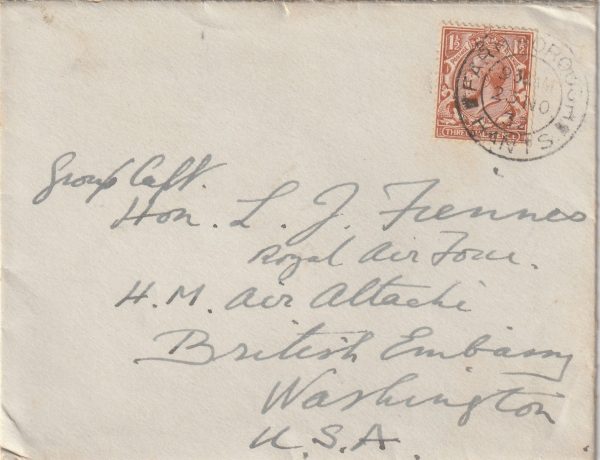 1½ 1½
FARNBOROUGH
HANTS
23 NO
Group Capt.
Hon. L. J. Fiennes
Royal Air Force.
H.M. Air Attaché
British Embassy
Washington
U.S.A.